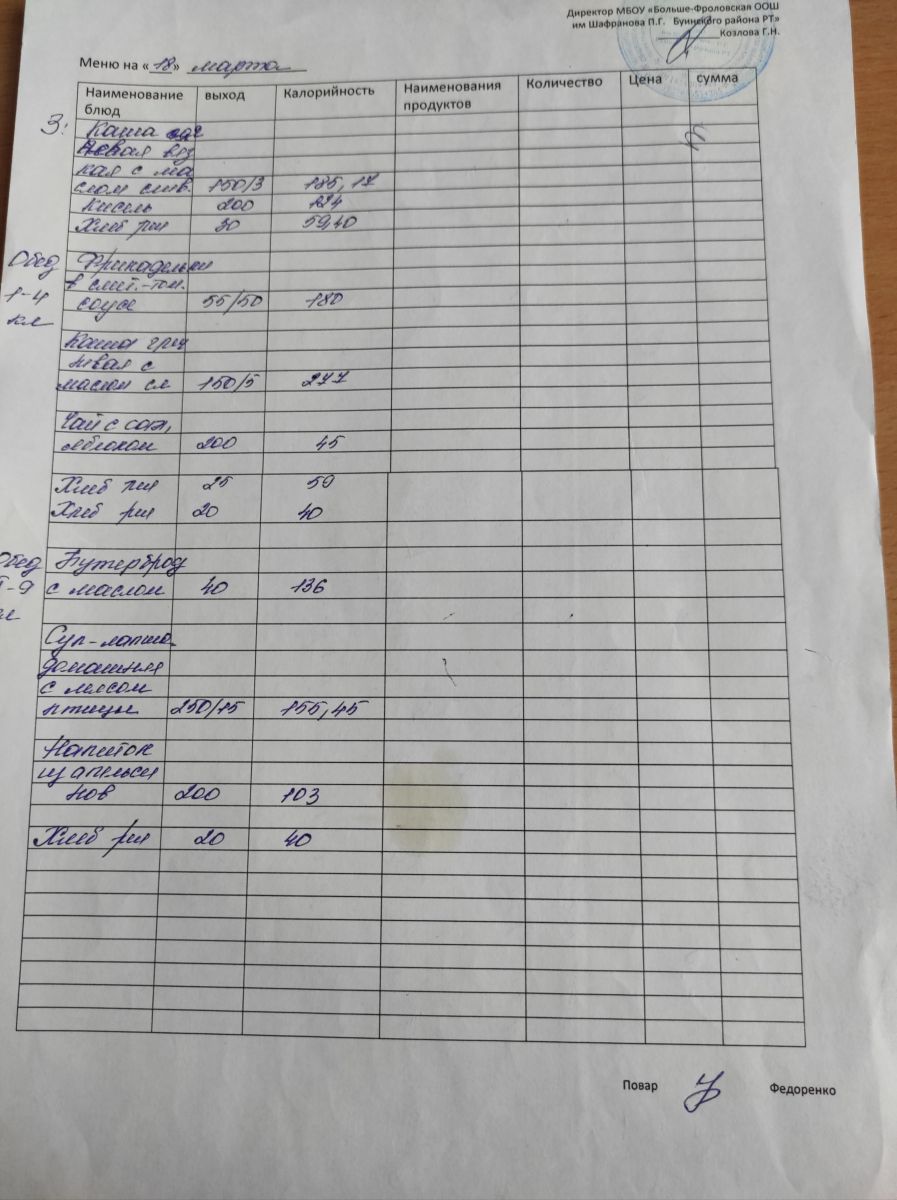 Директор МБОУ «Больше-Фроловская ООШ
им Шафранова П.Г. Буинского района РТ»
Козлова Г.Н.
Меню на «18» марта
Наименование блюд выход Калорийность Наименования продуктов Количество Цена сумма
З: Каша
вая вяз
кая с ма
слом слив. 150/3 185,17
Кисель 200 124
Хлеб рж 30 59,40
Обед Фрикадельки
1-4 в смет.-том.
кл соусе 55/50 180
Каша греч
невая с
маслом сл 150/5 277
Чай с сах,
яблоком 200 45
Хлеб пш 25 59
Хлеб рж 20 40
Обед Бутерброд
5-9 с маслом 40 136
кл
Суп-лапша
домашняя
с мясом
птицы 250/15 155,45
Напиток
из апельси
нов 200 103
Хлеб рж 20 40
Повар Федоренко